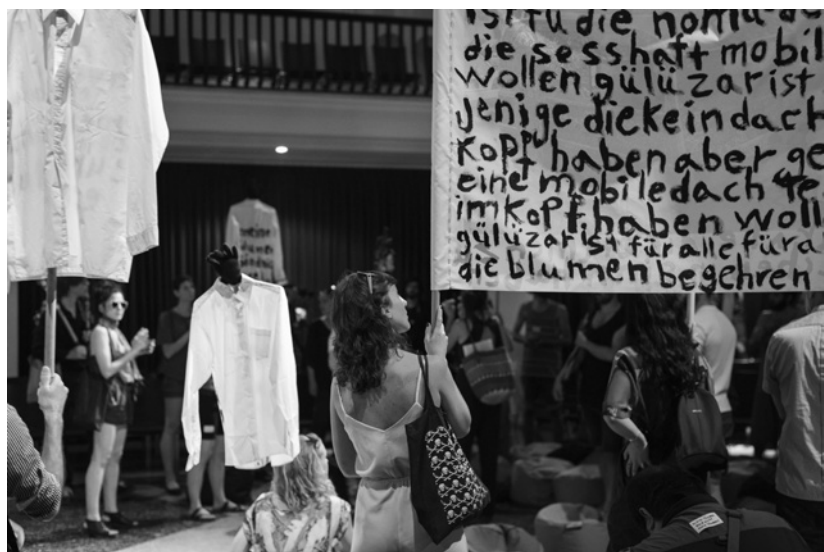 die sesshaft mobil
wollen gülüzar ist
jenige die kein dach
Kopf haben aber ge
eine mobile dach te
im Kopf haben woll
gülüzar ist für alle für a
die blumen begehren